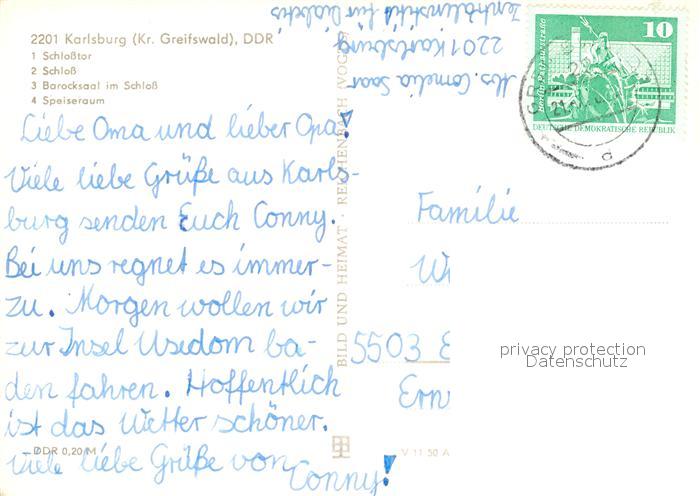 2201 Karlsburg (Kr. Greifswald), DDR
1 Schloßtor
2 Schloß
3 Barocksaal im Schloß
4 Speiseraum
Liebe Oma und lieber Opa!
Viele liebe Grüße aus Karls-
burg senden Euch Conny.
Bei uns regnet es immer-
zu. Morgen wollen wir
zur Insel Usedom ba-
den fahren. Hoffentlich
ist das Wetter schöner.
Viele liebe Grüße von
Conny!
DDR 0,20 M
BILD UND HEIMAT · REICHENBACH (VOGTL)
V 11 50 A
Cornelia Saar
2201 Karlsburg
Zentralinstitut für Diabetes
10
DEUTSCHE DEMOKRATISCHE REPUBLIK
Familie
5503 E
Ern
privacy protection
Datenschutz